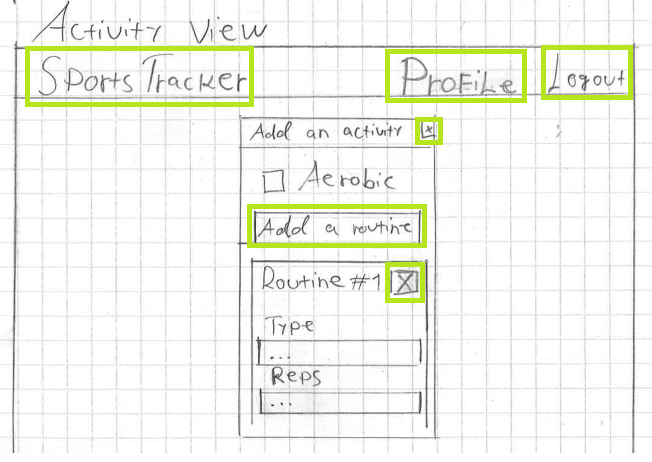 Activity View
SportsTracker Profile Logout
Add an activity x
Aerobic
Add a routine
Routine #1 X
Type
...
Reps
...